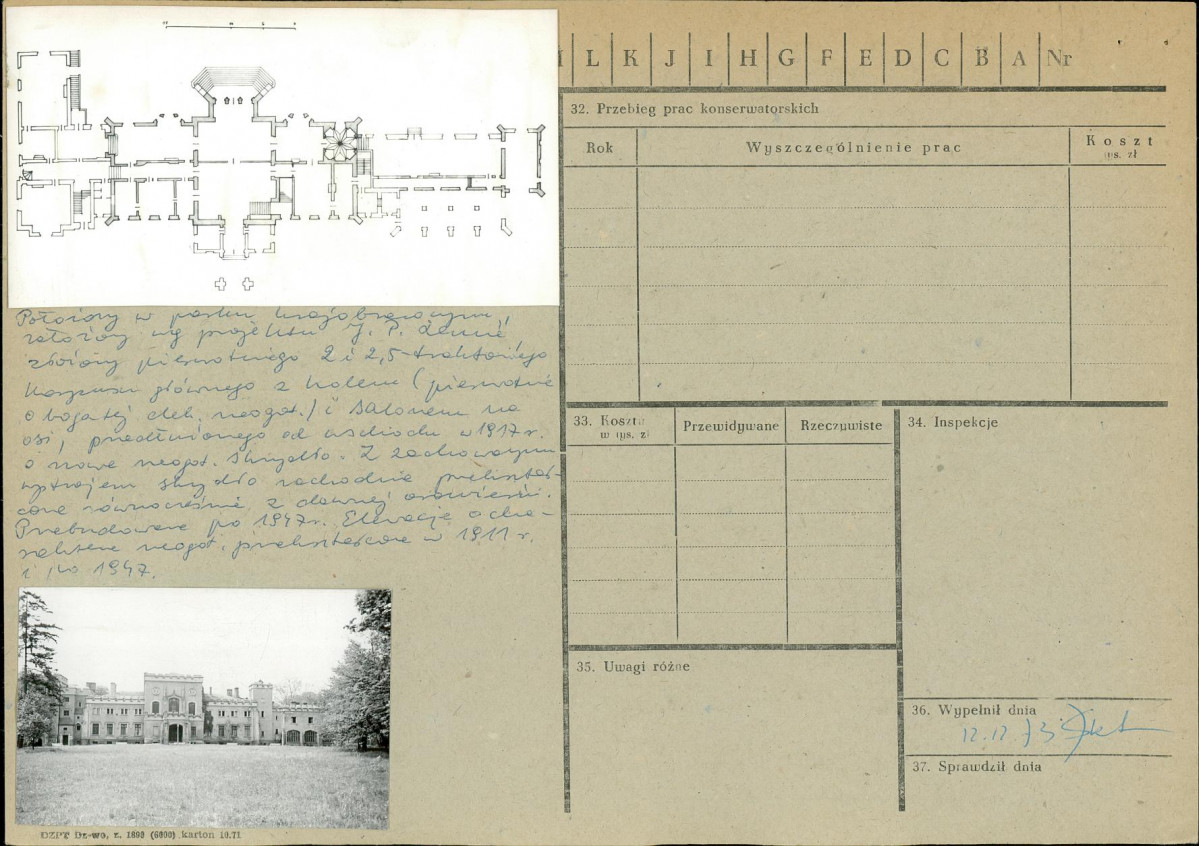 L K J I H G F E D C B A Nr
32. Przebieg prac konserwatorskich
Rok
Wyszczególnienie prac
Koszt
tys. zł
Położony w parku krajobrazowym,
założony wg projektu J. P. Lenné
złożony pierwotnego 2 i 2,5-traktowego
korpusu głównego z holem (pierwotnie
o bogatej dek. neogot.) i salonem na
osi, przedłużonego od wschodu w 1917 r.
o nowe neogot. skrzydło. Z zachowanym
wystrojem skrzydło zachodnie przekształ-
cone równocześnie z dawnej
Przebudowane po 1947 r. Elewacje o cha-
rakterze neogot. przekształcone w 1911 r.
i po 1947.
33. Koszta
w tys. zł
Przewidywane
Rzeczywiste
34. Inspekcje
35. Uwagi różne
36. Wypełnił dnia
12.12.73
37. Sprawdził dnia
DZPT Dz-wo, z. 1890 (6000) karton 10.71